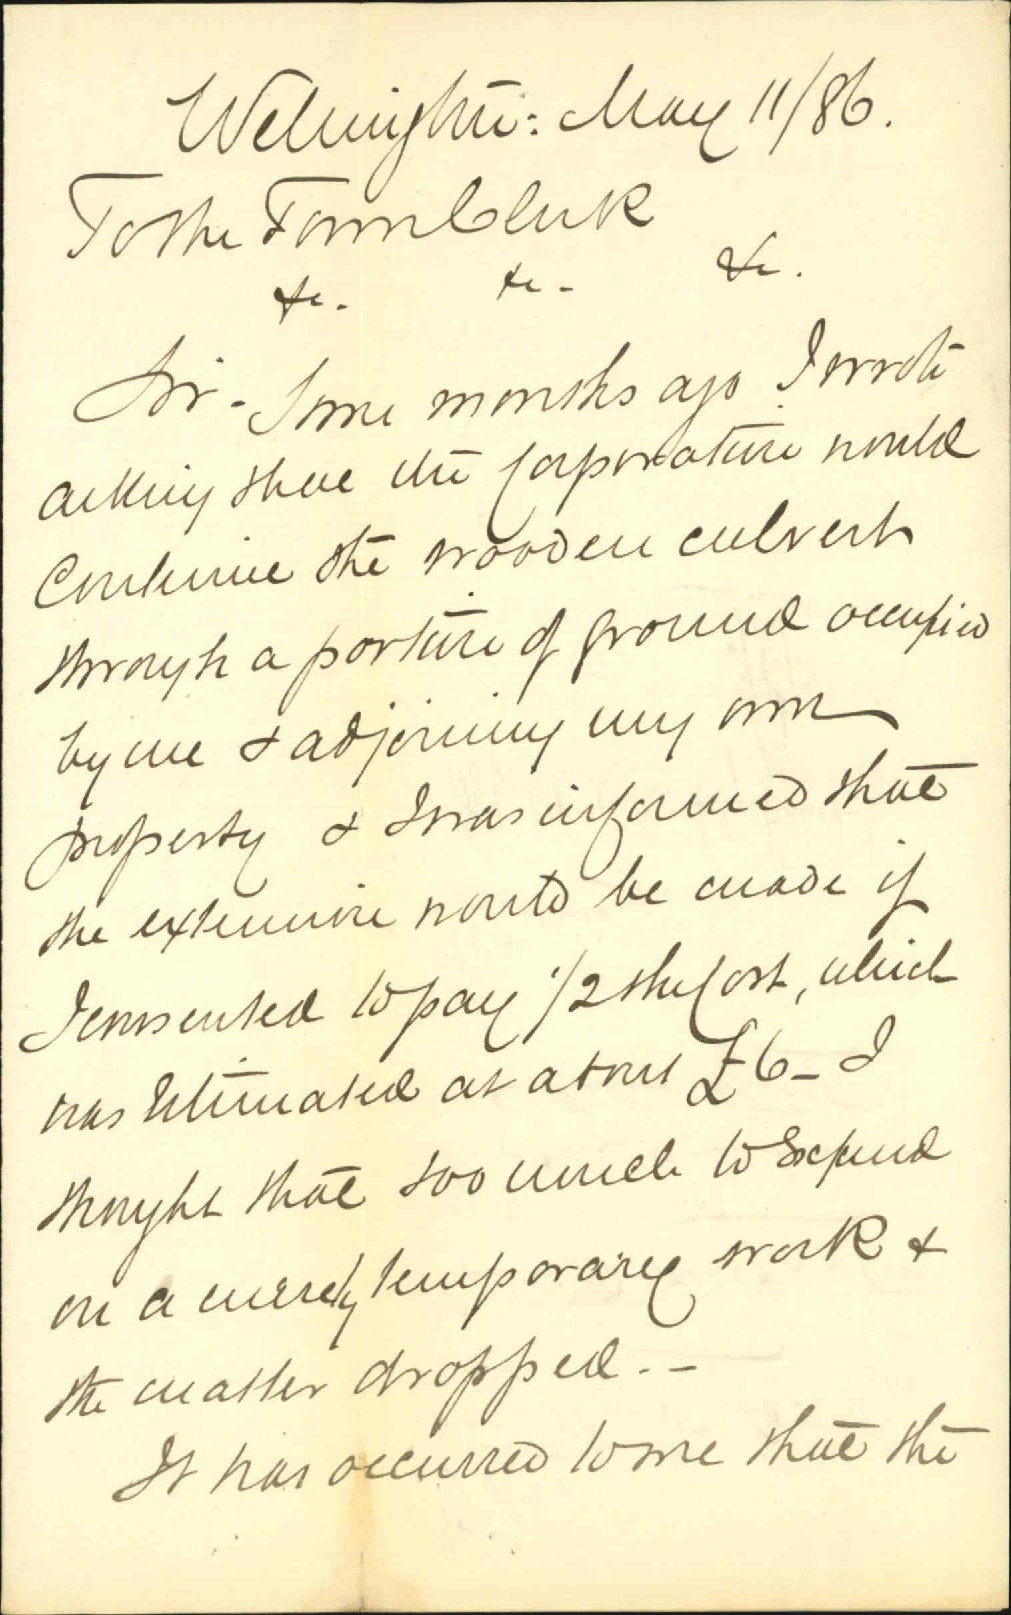 Wellington: May 11/86.
To the Town Clerk
&c. &c. - &c.
Sir - Some months ago I wrote
asking that the Corporation would
Continue the wooden culvert
through a portion of ground occupied
by me & adjoining my own
property & I was informed that
the extension would be made if
I consented to pay 1/2 the Cost, which
was Estimated at about £6 - I
thought that too much to Expend
on a merely temporary work &
the matter dropped. -
It has occurred to me that the